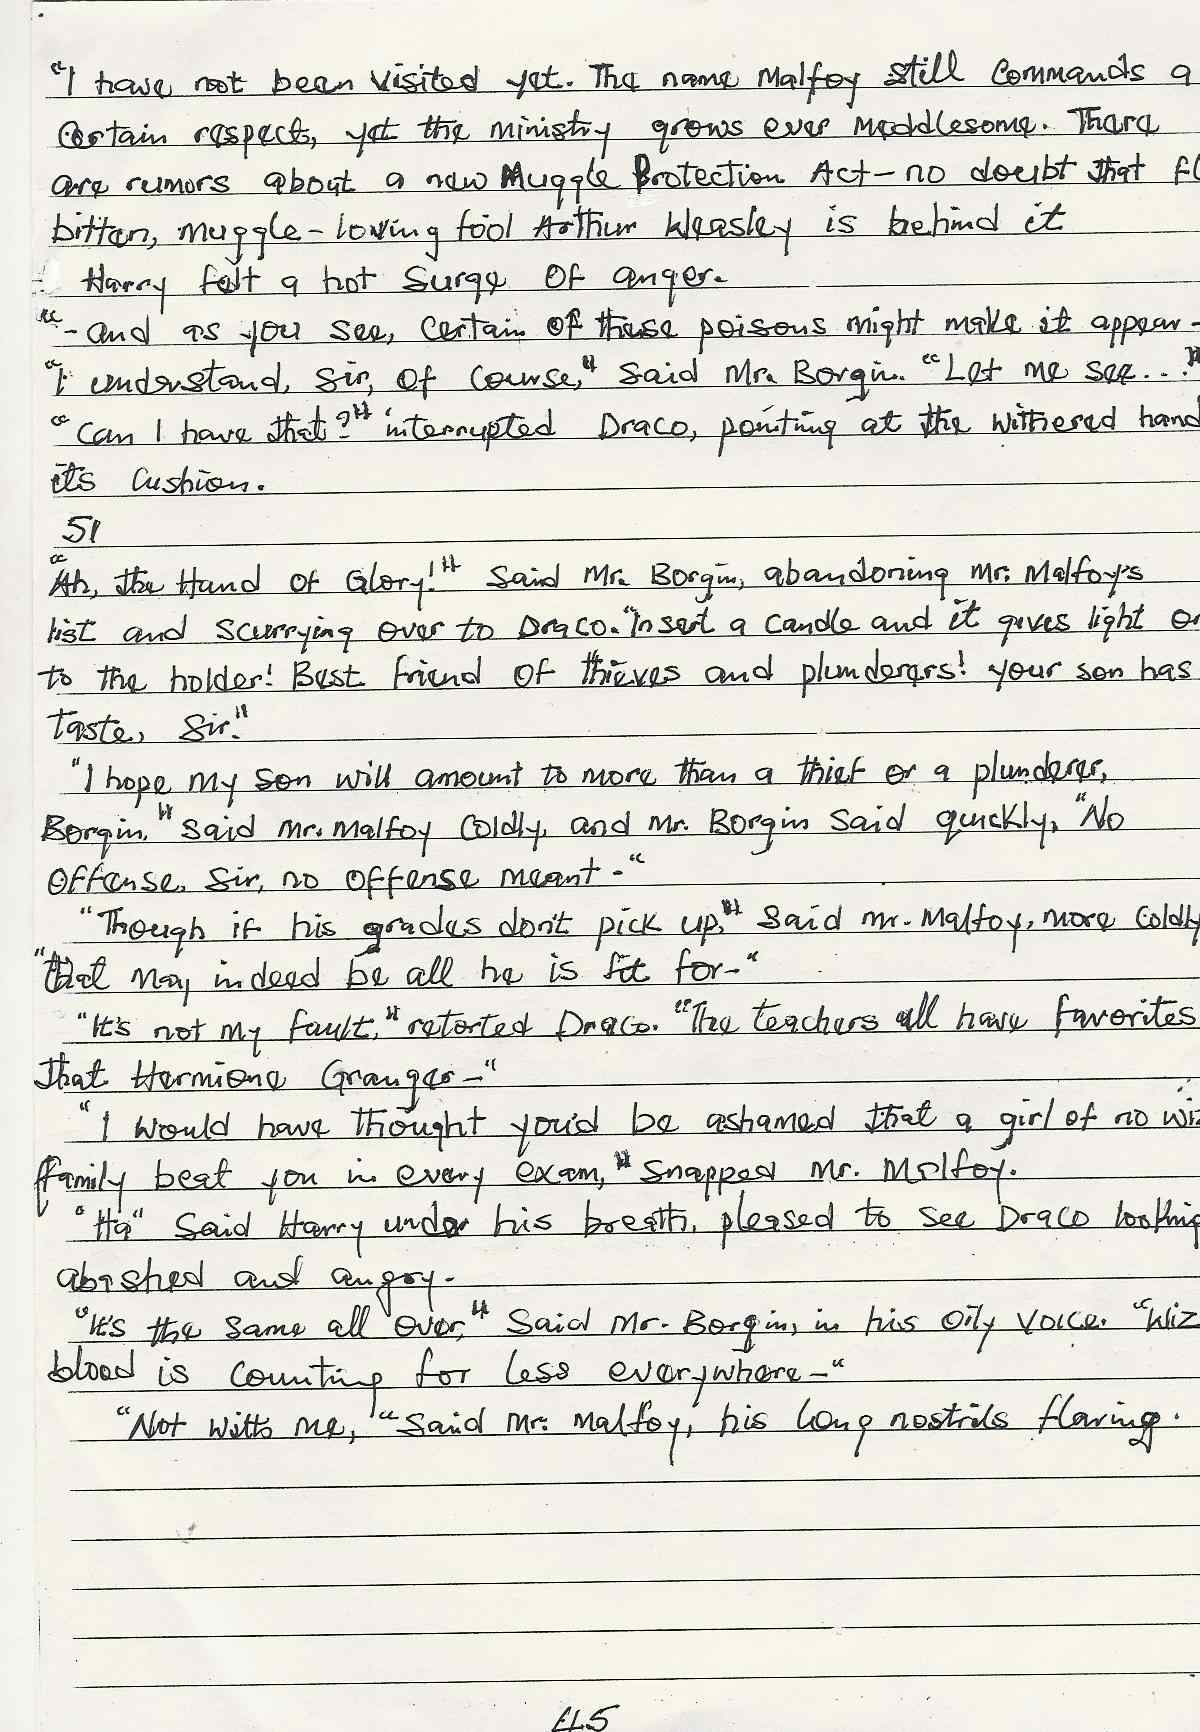 "I have not been visited yet. The name Malfoy still commands a
certain respect, yet the ministry grows ever meddlesome. There
are rumors about a new Muggle Protection Act - no doubt that fl
bitten, muggle-loving fool Arthur Weasley is behind it
Harry felt a hot surge of anger.
"- and as you see, certain of these poisons might make it appear -
"I understand, sir, of course," said Mr. Borgin. "Let me see..."
"Can I have that?" interrupted Draco, pointing at the withered hand
its cushion.
51
"Ah, the Hand of Glory!" said Mr. Borgin, abandoning Mr. Malfoy's
list and scurrying over to Draco. "Insert a candle and it gives light on
to the holder! Best friend of thieves and plunderers! your son has
taste, Sir."
"I hope my son will amount to more than a thief or a plunderer,
Borgin," said Mr. Malfoy coldly, and Mr. Borgin said quickly, "No
offense, sir, no offense meant -"
"Though if his grades don't pick up," said Mr. Malfoy, more coldly
"that may indeed be all he is fit for-"
"It's not my fault," retorted Draco. "The teachers all have favorites
that Hermione Granger-"
"I would have thought you'd be ashamed that a girl of no wiz
family beat you in every exam," snapped Mr. Malfoy.
"Ha" said Harry under his breath, pleased to see Draco looking
abashed and angry.
"It's the same all over," said Mr. Borgin, in his oily voice. "Wiz
blood is counting for less everywhere-"
"Not with me," said Mr. Malfoy, his long nostrils flaring.
45